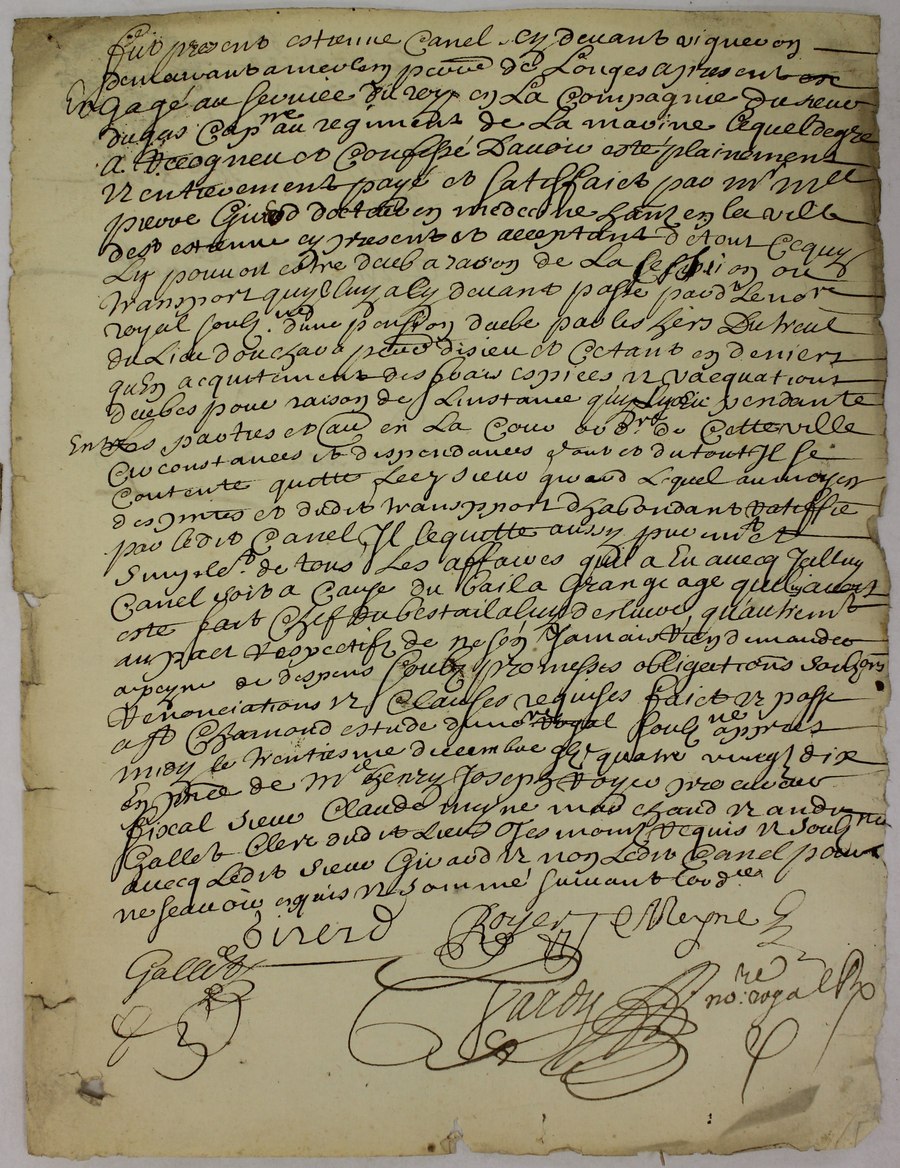 fut present estienne Canel cy devant vigneron
demeurant a parroe de Longes apresent
En gagé au service du roy en La Compagnie du sieur
dugas Capne au regiment de La marine Lequel de gre
A Recogneu et Confessé Davoir esté plainement
et entierement payé et satisfaict par mr me
pierre Girard docteur en medecine hant en la ville
de st estienne cy present et acceptant de tout Ce quy
Luy pouvoit estre deub a raison de La Cession ou
transport quy luy a cy devant passé pardt Le nore
royal soubz.né d'une pension deube par les hers Dutreul
du Lieu douchava et Ce tant en deniers
qu'En acquitement des frais espices et vaequations
deubes pour raison de Linstance quy pendante
Entre Les parties et au en La Cour ord.re de Cette ville
Circonstances et despendances dont et du tout Il se
Contente quitte Led sieur girard Lequel au moyen
des pntes et dudit transpport dhabondant ratiffié
par ledit Canel Il le quitte aussy puremt et
Simple.t de tous Les affaires quil a Eu avecq
Canel soit a Cause du bail a Grangeage
esté fait Chef du bestail qu'autremt
au pact Respectif de ne son Jamais Rien demander
a peyne de despens soubz promesses obligations
Renonciations et Clauses requises faict et passé
a st Chamond estude dunore Royal soub.né appres
midy le trentiesme decembre gbic quatre vingt dix
En pnce de Mre henry Joseph Royer procureur
fiscal sieur Claude meyne marchand et andre
Gallet Clerc dudit Lieu tesmoins Requis et soubznés
avecq Ledit sieur Girard et non Ledit Canel pour
ne scavoir enquis et sommé suivant Lord.ce
Girerd
Royer
C Meyne
Gallet
Vardy
no.re royal R